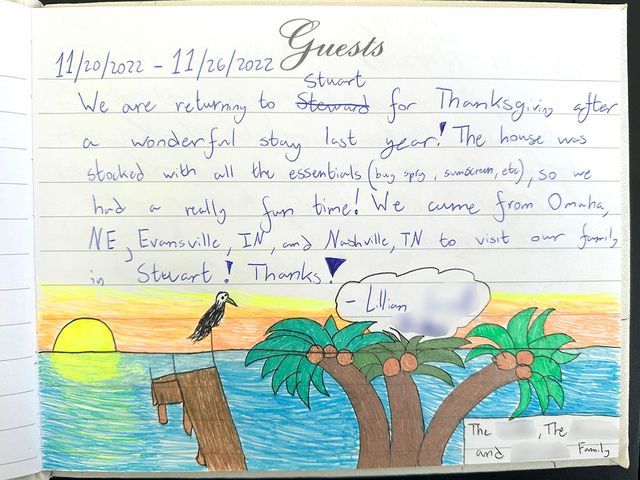 Guests
11/20/2022 - 11/26/2022
Stuart
We are returning to Steward for Thanksgiving after
a wonderful stay last year! The house was
stocked with all the essentials (bug spry, sumscreen, etc), so we
had a really fun time! We came from Omaha,
NE, Evansville, IN, and Nashville, TN to visit our family
in Stuart! Thanks!
- Lillian
The , The
and Family